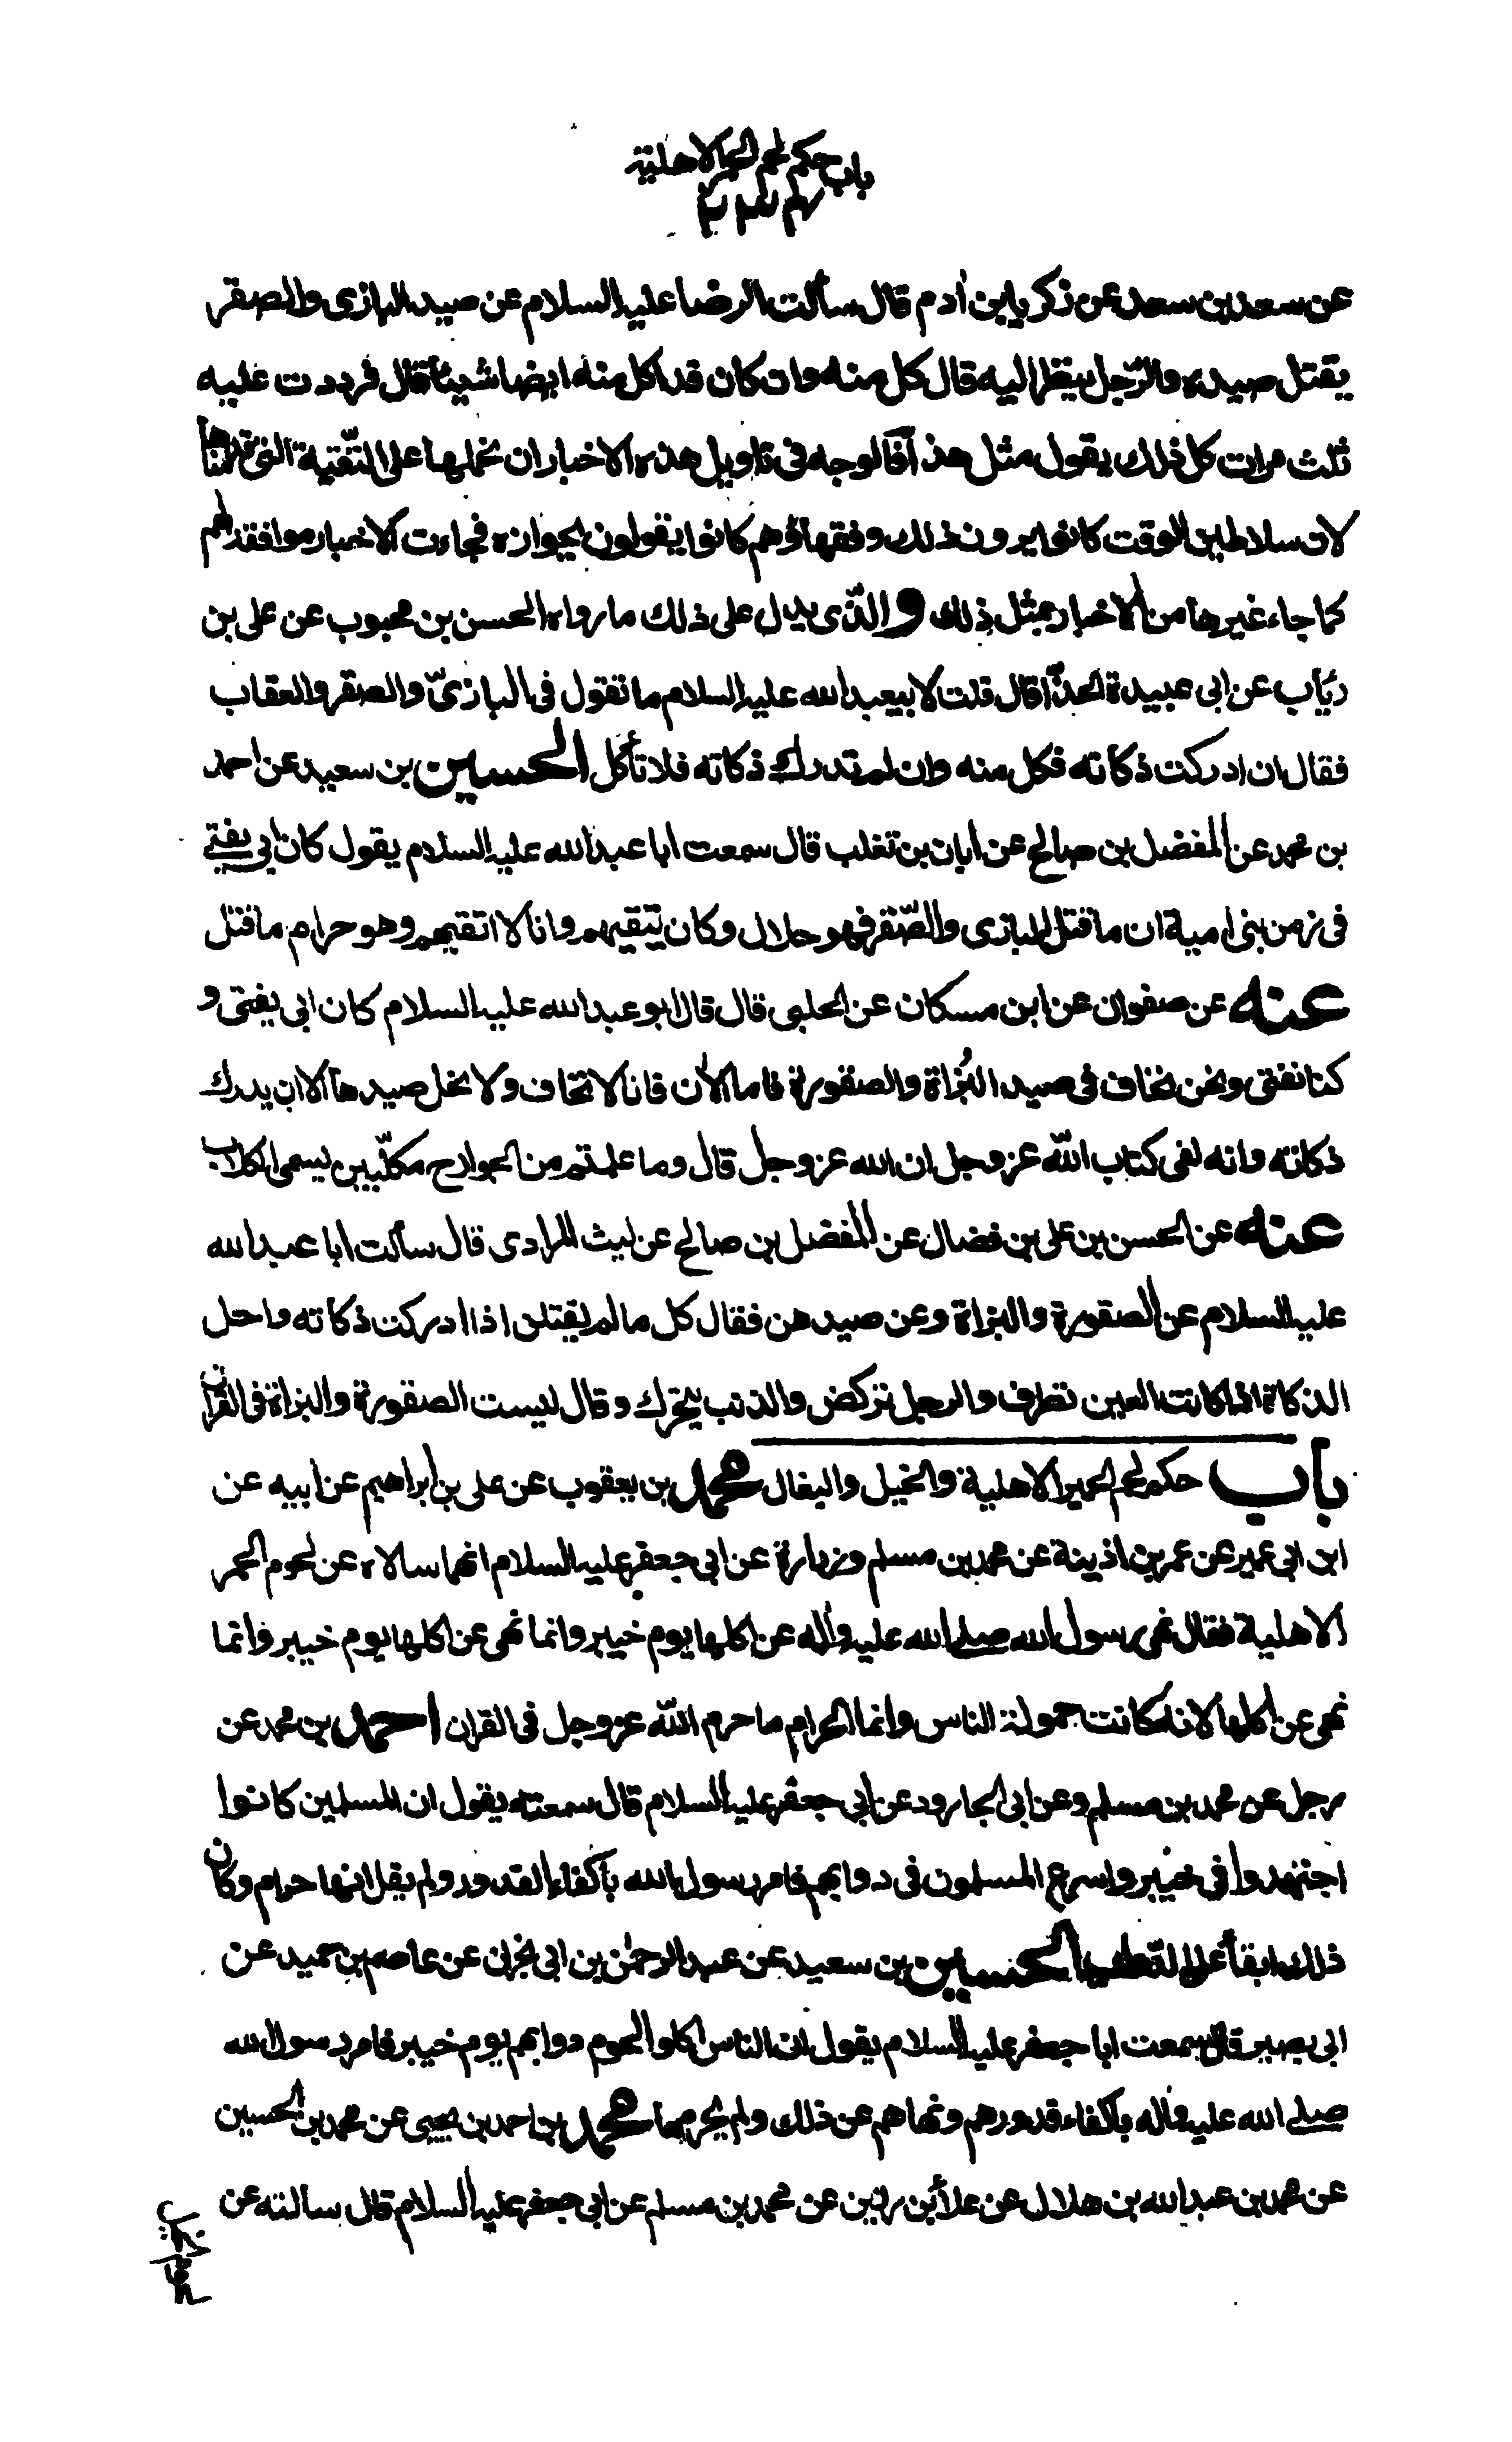 باب حكم لحم الحمر الاهلية
عن سعد بن سعد عن زكريا بن ادم قال سألت الرضا عليه السلام عن صيد البازى والصقر
يقتل صيده والرّجل ينظر اليه قال كل منه وان كان قد اكل منه ايضا شيئا قال فرددت عليه
ثلث مرات كل ذلك يقول مثل هذا فالوجه فى تاويل هذه الاخبار ان نحملها على التّقية التى قدمناها
لان سلاطين الوقت كانوا يرون ذلك وفقهاؤهم كانوا يقولون بجوازه فجاءت الاخبار موافقة لهم
كما جاء غيرها من الاخبار بمثل ذلك والّذى يدل على ذلك ما رواه الحسن بن محبوب عن على بن
رئاب عن ابى عبيدة الحذّا قال قلت لابيعبد الله عليه السلام ما تقول فى البازىّ والصقر والعقاب
فقال ان ادركت ذكاته فكل منه وان لم تدرك ذكاته فلا تأكل الحسين بن سعيد عن احمد
بن محمد عن المفضل بن صالح عن ابان بن تغلب قال سمعت ابا عبد الله عليه السلام يقول كان ابى يفتى
فى زمن بنى امية ان ما قتل البازى والصّقر فهو حلال وكان يتقيهم وانا لا اتقيهم وهو حرام ما قتل
عنه عن صفوان عن ابن مسكان عن الحلبى قال قال ابو عبد الله عليه السلام كان ابى يفتى و
كنا نفتى ونحن نخاف فى صيد البُزاة والصقورة فاما الأن فانا لا نخاف ولا يحل صيدها الا ان يدرك
ذكاته وانه لفى كتاب اللّه عز وجل ان الله عز وجل قال وما علمتم من الجوارح مكلّبين يسمى الكلاب
عنه عن الحسن بن على بن فضال عن المفضل بن صالح عن ليث المرادى قال سألت ابا عبد الله
عليه السلام عن الصقورة والبزاة وعن صيدهن فقال كل ما لم يقتلن اذا ادركت ذكاته واخل
الذكاة اذا كانت العين تطرف والرجل تركض والذنب يتحرك وقال ليست الصقورة والبزاة فى القران
باب حكم لحم الحمير الاهلية والخيل والبغال محمد بن يعقوب عن على بن ابراهيم عن ابيه عن
ابن ابى عمير عن عمر بن اذينة عن محمد بن مسلم وزرارة عن ابى جعفر عليه السلام انهما سالاه عن لحوم الحمر
الاهلية فقال نهى رسول الله صلى الله عليه واله عن اكلها يوم خيبر وانما نهى عن اكلها يوم خيبر وانما
نهى عن اكلها لانها كانت حمولة الناس وانما الحرام ما حرم اللّه عز وجل فى القران احمد بن محمد عن
رجل عن محمد بن مسلم وعن ابى الجارود عن ابى جعفر عليه السلام قال سمعته يقول ان المسلمين كانوا
اجتهدوا فى خيبر واسرع المسلمون فى دوابهم فامر رسول الله باكفاء القدور ولم يقل انها حرام وكان
ذلك ابقاء على الدّواب الحسين بن سعيد عن عبد الرحمن بن ابى نجران عن عاصم بن حميد عن
ابى بصير قال سمعت ابا جعفر عليه السلام يقول ان الناس اكلوا لحوم دوابهم يوم خيبر فامر رسول الله
صلى الله عليه واله باكفاء قدورهم ونهاهم عن ذلك ولم يحرمها محمد بن احمد بن يحيى عن محمد بن الحسين
عن محمد بن عبد الله بن هلال عن علا بن رزين عن محمد بن مسلم عن ابى جعفر عليه السلام قال سالته عن